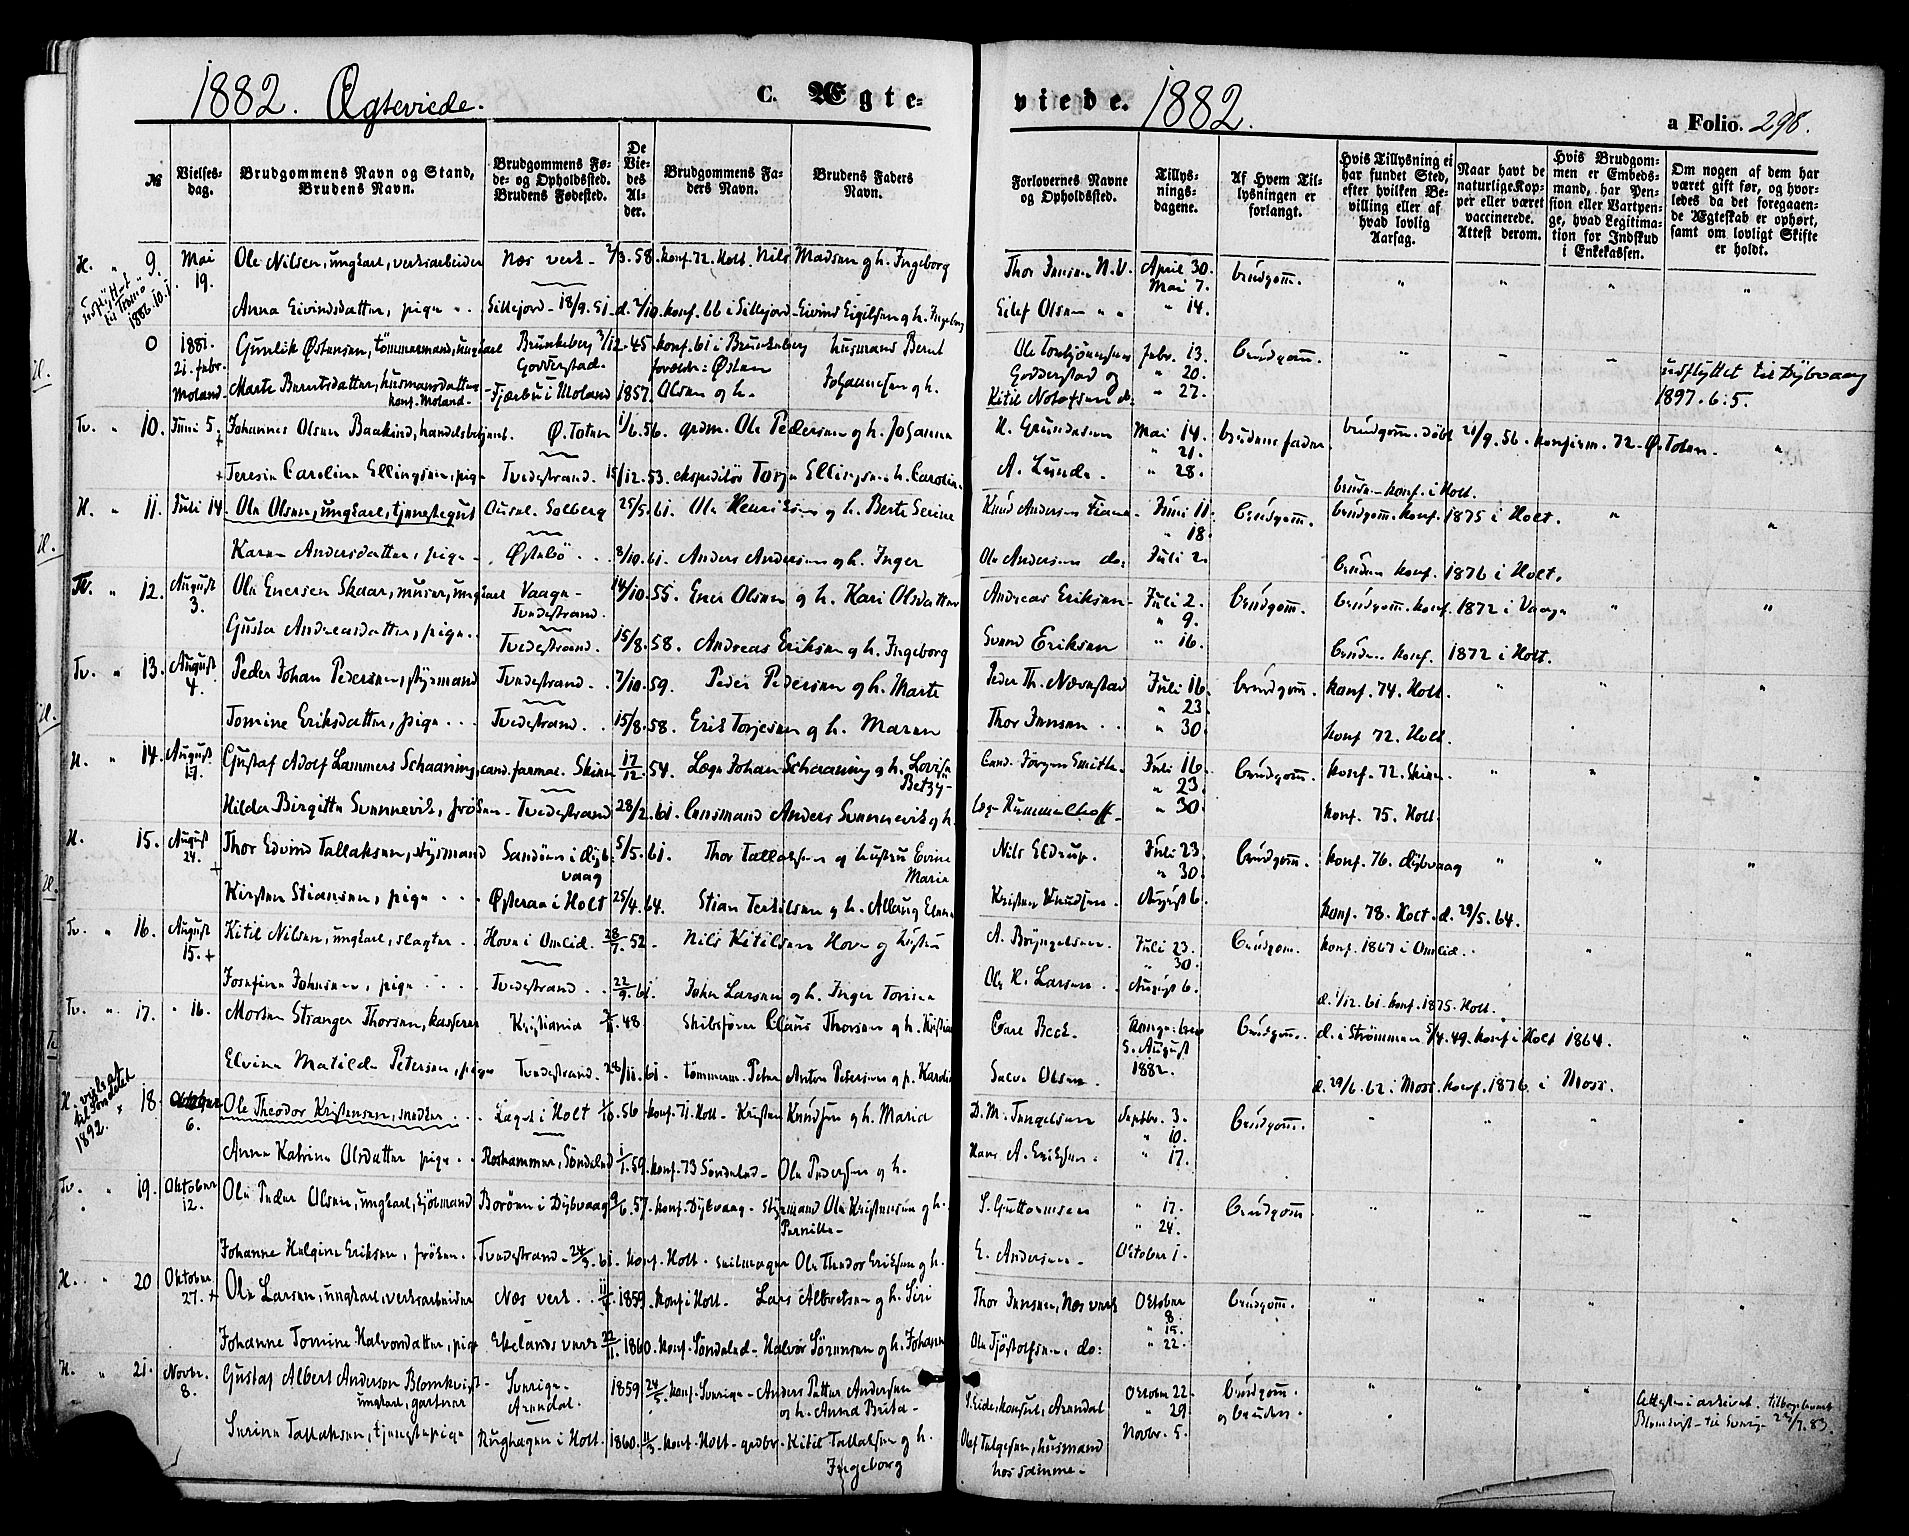 1882. Ægteviede.
C. Ægte-
viede. 1882.
a Folio. 298.
№
Vielses-
dag.
Brudgommens Navn og Stand,
Brudens Navn.
Brudgommens Fø-
de- og Opholdssted.
Brudens Fødested.
De
Vie-
des
Al-
der.
Brudgommens Fa-
ders Navn.
Brudens Faders
Navn.
Forlovernes Navne
og Opholdssted.
Tillys-
nings-
dagene.
Af Hvem Til-
lysningen er
forlangt.
Hvis Tillysning ei
har fundet Sted,
efter hvilken Be-
villing eller af
hvad lovlig
Aarsag.
Naar havt de
naturlige Kop-
per eller været
vaccinerede.
Attest derom.
Hvis Brudgom-
men er Embeds-
mand, har Pen-
sion eller Vartpen-
ge, hvad Legitima-
tion for Indskud
i Enkekassen.
Om nogen af dem har
været gift før, og hvor-
ledes da det foregaaen-
de Ægteskab er ophørt,
samt om lovligt Skifte
er holdt.
H. " 9. Mai 19. Ole Nilsen, ungkarl, verksarbeider Næs verk - 2/3. 58. konf. 72. Holt. Nils Madsen og h. Ingeborg Thor Jensen N.V. April 30. Mai 7. brudgom. " " " "
1886.10.1
Anna Eivindsdatter, pige Sillejord - 18/9. 51. konf. 66 i Sillejord - Eivind Eigilsen og h. Ingeborg Eilef Olsen " " " 14.
0 1881. 21. febr. Moland Gunlik Østensen, tömmermand, ungkarl Brunkeberg Godderstad. 3/12. 45. konf. 61 i Brunkeberg forældr: Østen Olsen og h. husmand Bernt Johannesen og h. Ole Torbjørnsen Godderstad og Febr. 13. " 20. brudgom. " - - udflyttet til Dybvaag 1897. 6. 5.
Marte Berntsdatter, husmandsdatter konf. Moland - Fjærbu i Moland 1857. Kitil Notofsen do: " 27.
Tv. " 10. Juni 5. + Johannes Olsen Baakind, handelsbetjent. Ø. Toten 1/6. 56. grdm. Ole Pedersen og h. Johanne H. Gundersen Mai 14. " 21. brudens fader brudgom. döbt 21/9. 56. konfirm. 72 - Ø. Toten. "
+ Teresia Carolina Ellingsen, pige Tvedestrand. 15/12. 53. ekspeditör Torje Ellingsen h. Carolin. A. Lunde. " 28. bruden konf. i Holt.
H. " 11. Juli 14. Ole Olsen, ungkarl, tjenestegut Solberg 25/5. 61. Ole Henriksen og h. Berte Serine Knud Andersen Juni 11. " 18. brudgom. brudgom. konf. 1875 i Holt. " "
Karen Andersdatter, pige - Østebö . . 8/10. 61. Anders Andersen og h. Inger Ole Andersen do: Juli 2. bruden konf. 1876 i Holt.
Tv. " 12. August 3. Ole Enersen Skaar, murer, ungkarl Vaage - Tvedestrand. 14/10. 55. Ener Olsen og h. Kari Olsdatter Andreas Eriksen - Juli 2. " 9. brudgom. brudgom. konf. 1872 i Vaage " "
Gusta Andreasdatter, pige. Tvedestrand. 15/8. 58. Andreas Eriksen og h. Ingeborg Svend Eriksen " 16. bruden konf. 1872 i Holt.
Tv. " 13. August 4. Peder Johan Pedersen, styrmand Tvedestrand. . 7/10. 59. Peder Pedersen og h. Marte Peder Th. Nævestad Juli 16. " 23. brudgom. konf. 74. Holt. " " "
Tomine Eriksdatter, pige . . . Tvedestrand. . 15/8. 58. Erik Torjesen og h. Maren Thor Jensen . . " 30. konf 72. Holt.
H. " 14. August 17. Gustaf Adolf Lammers Schaaning, cand. farmac. Skien 17/12. 54. Læge Johan Schaaning og h. Lovise Betzy - Cand. Jörgen Smith - Juli 16. " 23. brudgom. konf. 72. Skien. " " "
Hilda Birgitte Svennevik, fröken - Tvedestrand 28/2. 61. Lensmand Anders Svennevik og h. Læge Rummelhoff - " 30 konf. 75. Holt.
H. 15. August 24. + Thor Edvind Tallaksen, styrmand Sandöen i Dybvaag 5/5. 61. Thor Tallaksen og hustru Evine Marie Nils Eldrup. Juli 23. " 30. brudgom. konf. 76. Dybvaag " " "
Kirsten Stiansen, pige . . . Østeraa i Holt 25/4. 64. Stian Terkelsen og h. Allaug Elen Kristen Knudsen. August 6. konf. 78. Holt. d. 29/5. 64.
Tv. " 16. August 15. + Kitil Nilsen, ungkarl, slagter . Hove i Omlid. 28/7. 52. Nils Kitilsen Hove og hustru A. Bryngelsen. Juli 23. " 30. brudgom. konf. 1867 i Omlid. " "
Josefine Johnsen, pige . . . Tvedestrand. . 22/9. 61. John Larsen og h. Inger Tomine Ole H. Larsen . . August 6. d. 1/12. 61. konf. 1875. Holt.
Tv. " 17. " 16. Morten Stranger Thorsen, kasserer Kristiania 48. Skibsförer Claus Thorsen og h. Kristiane Carl Beck. Kongebrev 5. August 1882. brudgom. d. i Strömmen 5/4. 49. konf i Holt 1864. "
Elvine Matilde Petersen, pige Tvedestrand. 28/11. 61. tömmerm. Peter Anton Petersen og h. Karoline Salve Olsen. d. 29/6. 62 i Moss. konf. 1876. i Moss.
H. til Söndeled 1892. " 18. Oktober 6. Ole Theodor Kristensen, snedker . . Laget i Holt 1/10. 56. konf. 71. Holt - Kristen Knudsen og h. Maria D. M. Tengelsen Septbr. 3. " 10. brudgom. " " " "
Anne Katrine Olsdatter pige . . Roshammer, Söndeled 1/1. 59. konf. 73 Söndeled - Ole Pedersen og h. Hans A. Eriksen . " 17.
Tv. " 19. Oktober 12. Ole Peder Olsen, ungkarl, sjömand Boröen i Dybvaag 9/6. 57. konf. Dybvaag - Styrmand Ole Kristensen og h. Pernille - S. Guttormsen " 17. " 24. brudgom " " - "
Johanne Helgine Eriksen, fröken. Tvedestrand - 24/3. 61. konf. Holt. seilmager Ole Theodor Eriksen og h. E. Andersen - Oktober 1.
H. " 20 Oktober 27. + Ole Larsen, ungkarl, verksarbeider Næs verk . . 1859. konf i Holt - Lars Albretsen og h. Siri Thor Jensen, Næs verk Oktober 8. " 15. brudgom. " " " "
Johanne Tomine Halvorsdatter, pige Egelands verk 22/11. 1860. konf. Söndeled - Halvor Sörensen og h. Johanne Ole Tjöstolfsen, do: " 22.
H. " 21. Novbr. 8. Gustaf Albert Anderson Blomkvist - ungkarl, gartner Sverige - Arendal. 1859. 24/5. konf. Sverige - Anders Petter Andersen og h. Anna Brita - S. Eide, konsul, Arendal Oktober 22. " 29. brudgom. og bruden. " " " Attesten i arkivet. tilbagelevert Blomkvist til Sverig 22/7. 83.
Serine Tallaksen, tjenestepige Rughagen i Holt. 1860. konf. Holt - grdbr. Kitil Tallaksen og h. Ingeborg Olef Telgesen, husmand hos samme - Novbr. 5.